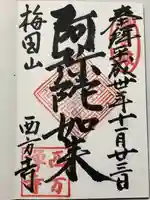 奉拝 平成卅年十一月廿三日
阿弥陀如来
西方寺
西方禅寺